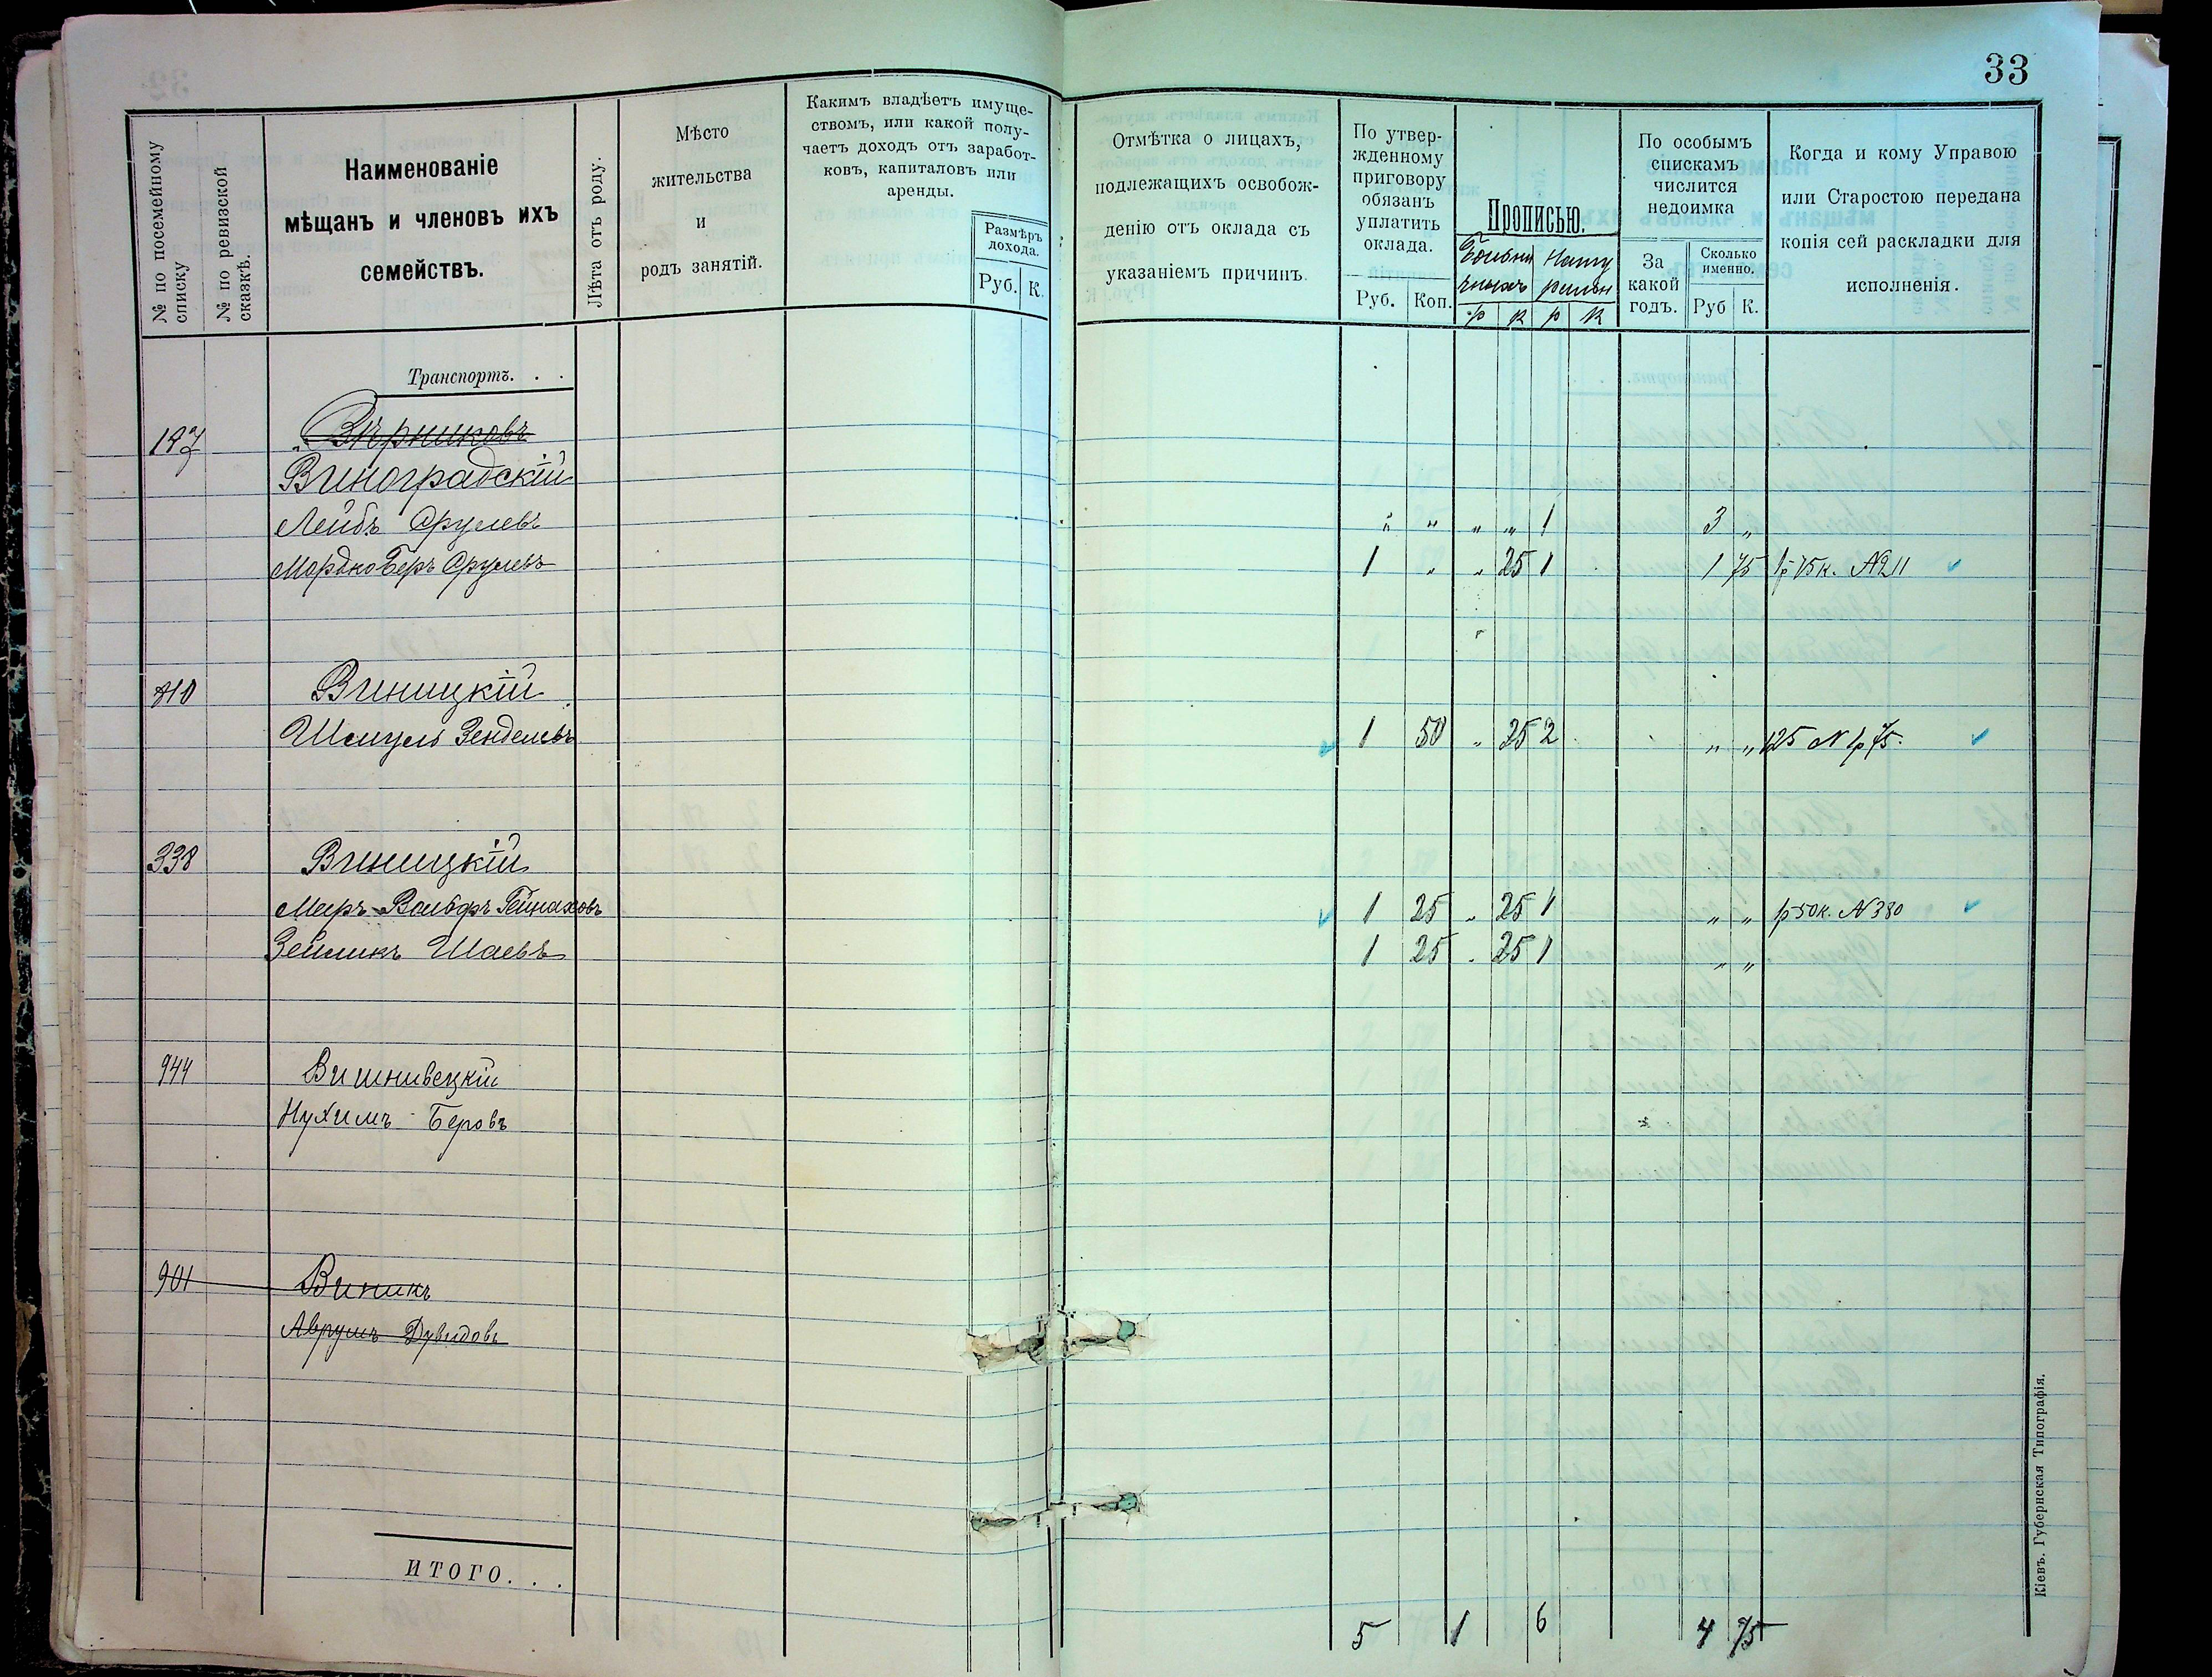 33
№ по посемейному списку
№ по ревизской сказкѣ.
Наименованіе
мѣщанъ и членовъ ихъ
семействъ.
Лѣта отъ роду.
Мѣсто
жительства
и
родъ занятій.
Какимъ владѣетъ имуще-
ствомъ, или какой полу-
чаетъ доходъ отъ заработ-
ковъ, капиталовъ или
аренды.
Размѣръ
дохода.
Руб. К.
Отмѣтка о лицахъ,
подлежащихъ освобож-
денію отъ оклада съ
указаніемъ причинъ.
По утвер-
жденному
приговору
обязанъ
уплатить
оклада.
Руб. Коп.
Прописью.
р к р к
По особымъ
спискамъ
числится
недоимка
За
какой
годъ.
Сколько
именно.
Руб К.
Когда и кому Управою
или Старостою передана
копія сей раскладки для
исполненія.
Транспортъ. . .
147 Вѣрниковъ
Виноградскій
Лейбъ Срулевъ " " " " 1 3 "
Мордко Беръ Срулевъ 1 " " 25 1 1 75 1р 75к. №211
Виницкій
Шмуль Зенделевъ 1 50 " 25 2 " " 125 № 1р 75.
338 Виницкій
Меръ-Вольфъ Гейнаховъ 1 25 " 25 1 " " 1р 50к. №380
Зейликъ Шаевъ 1 25 " 25 1 " "
944 Вишнивецкій
Нухимъ Беровъ
901 Виникъ
Аврумъ Дувидовъ
ИТОГО. . .
5 1 6 4 75
Кіевъ. Губернская Типографія.